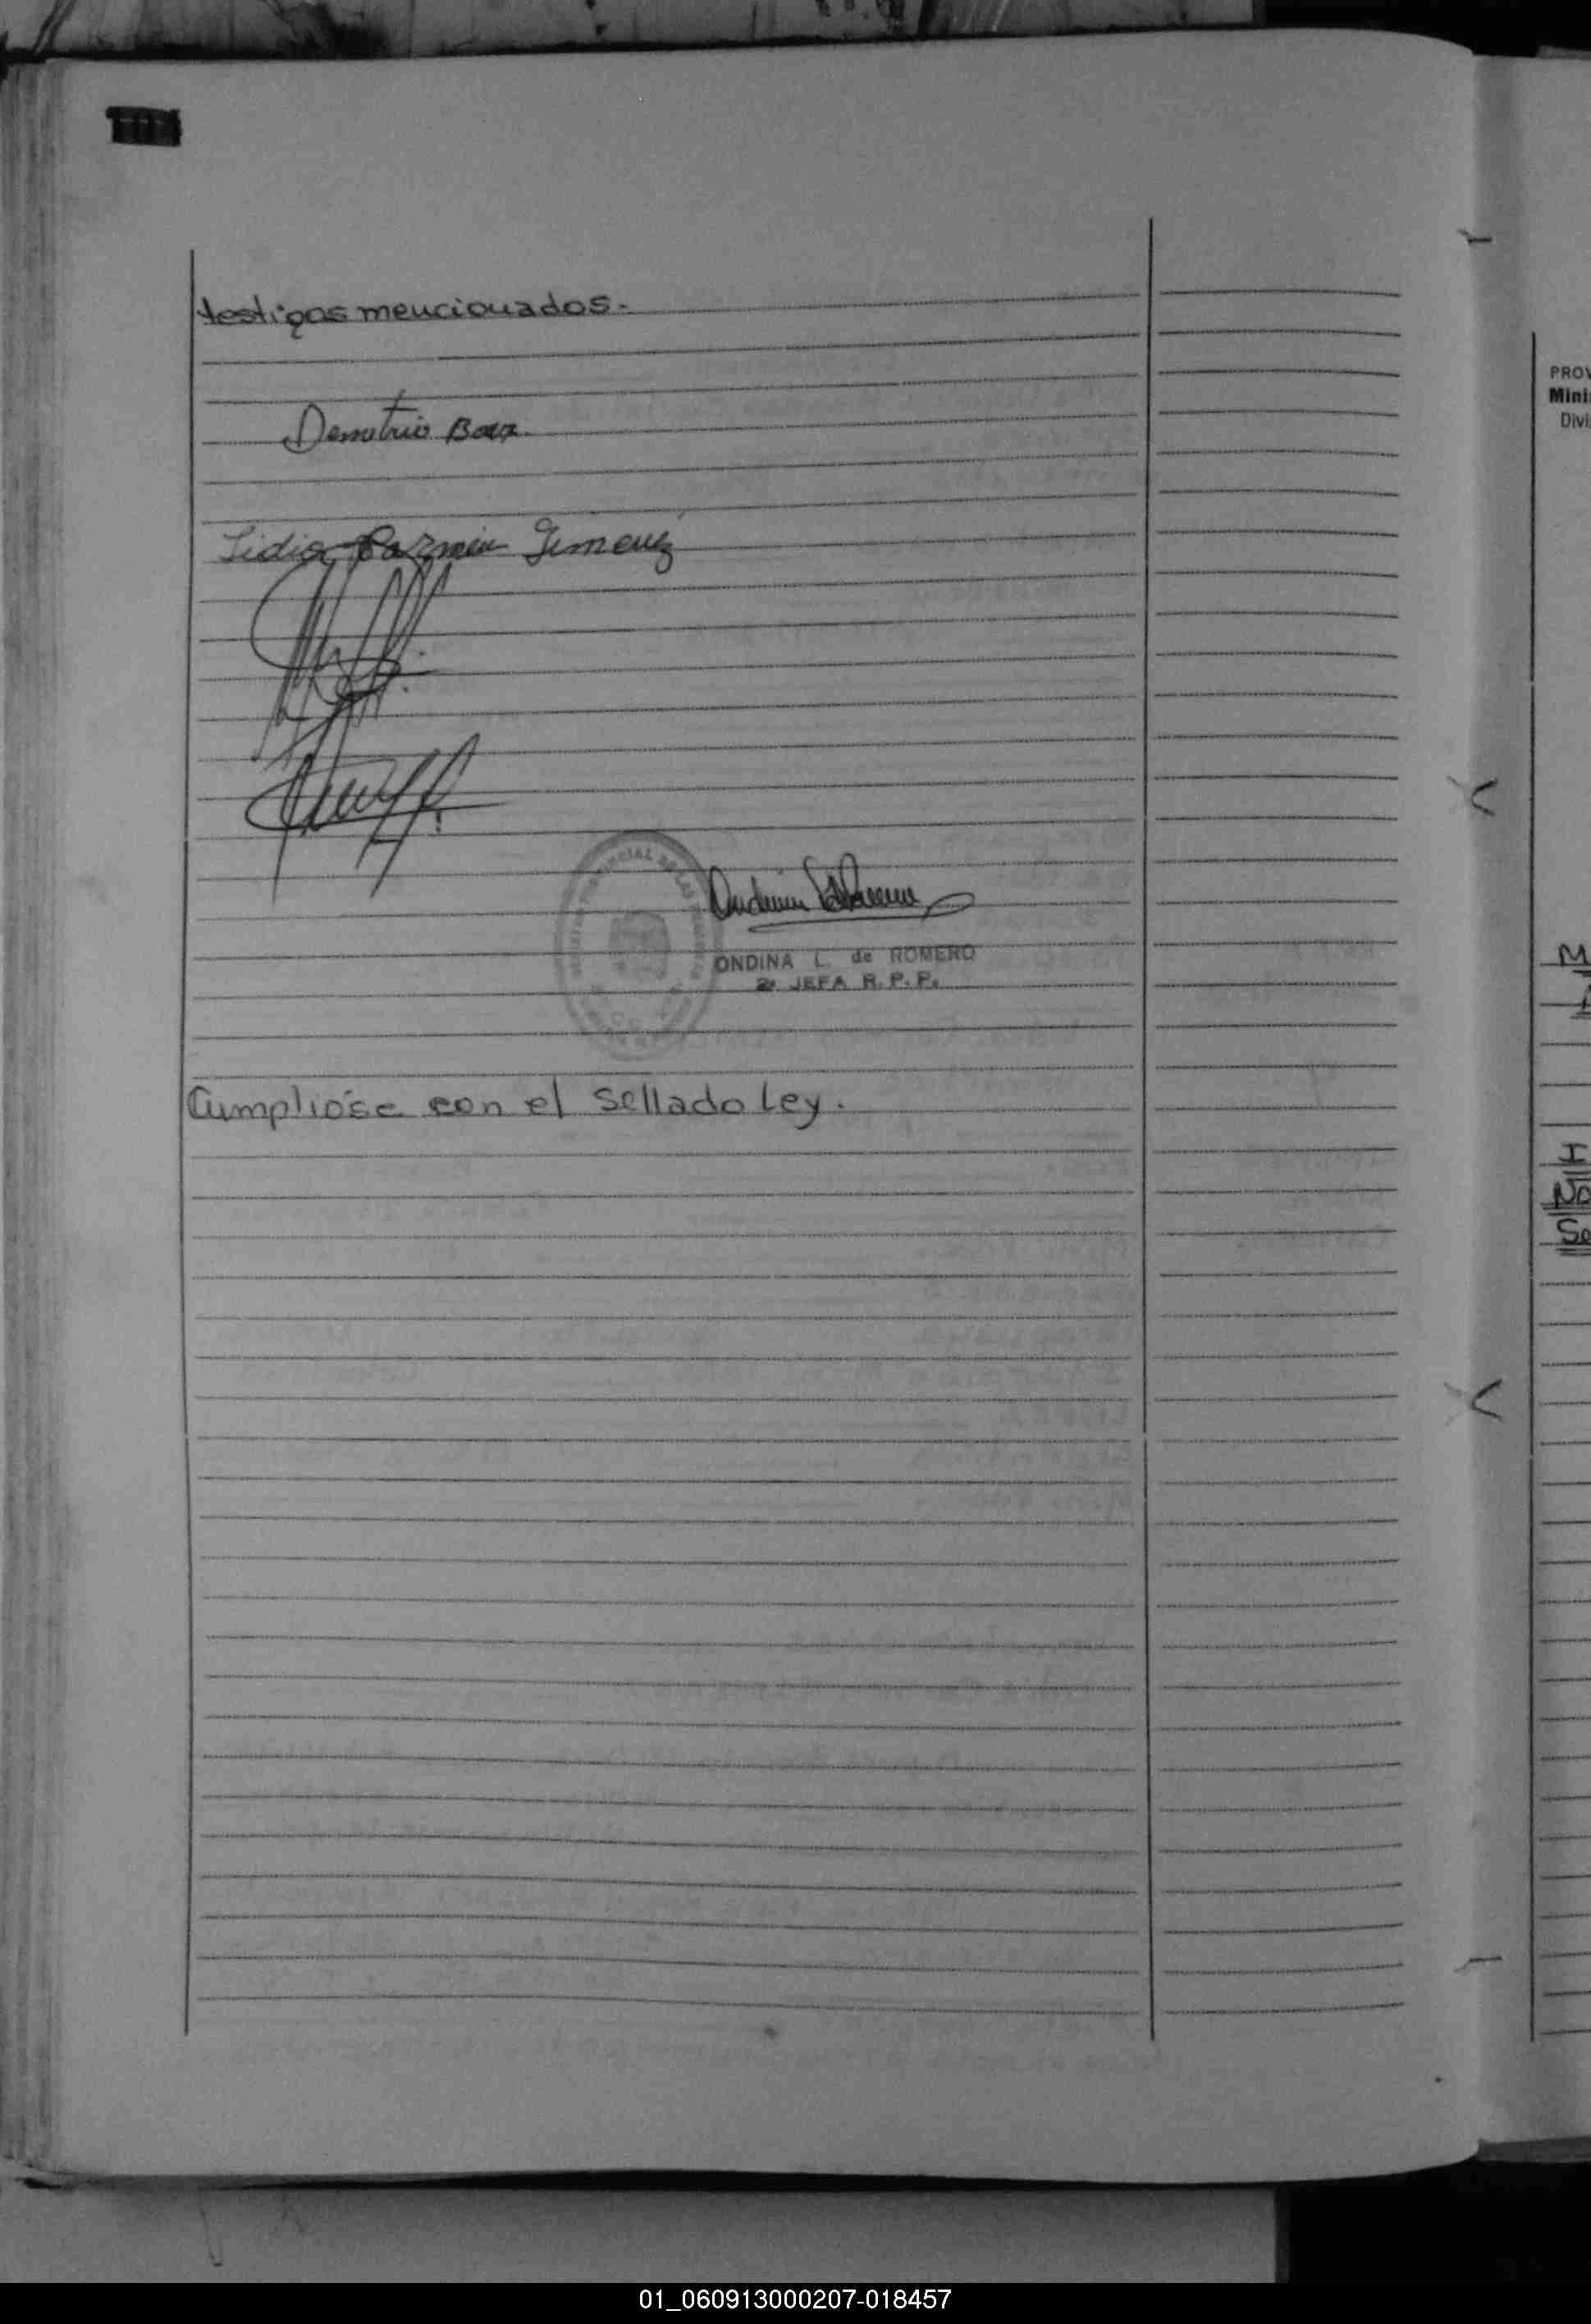 testigos mencionados.-
Demetrio Baez
Lidia Jazmin Gimenez
ONDINA L. de ROMERO
2ª JEFA R. P. P.
Cumplióse con el sellado Ley.
PROV
Mini
Divi
M
I
No
Se
01_060913000207-018457